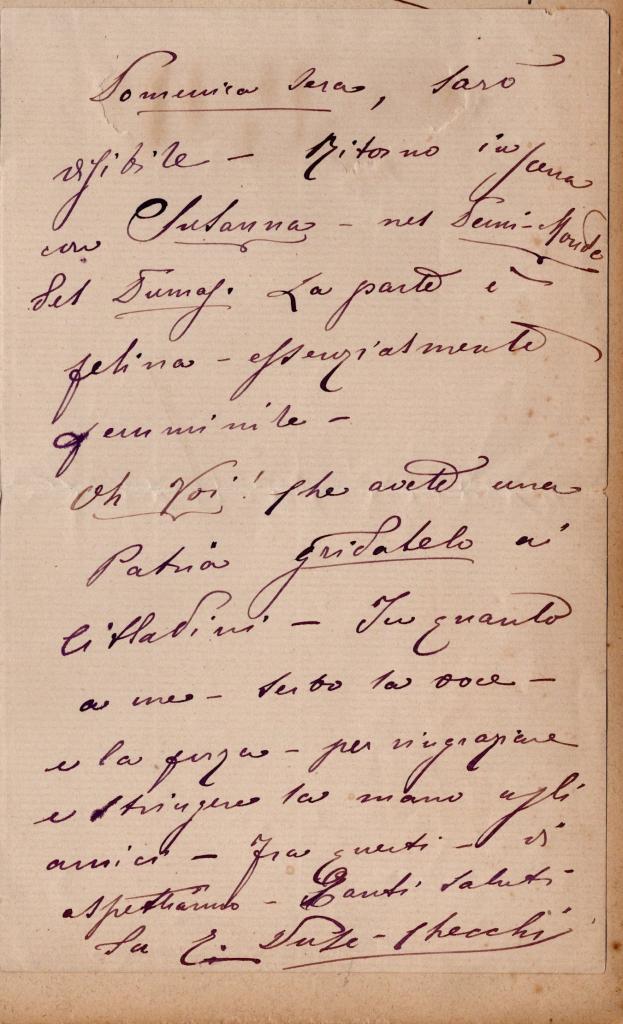 Domenica sera, sarò
visibile – Ritorno in scena
con Susanna – nel Demi-Monde
del Dumas. La parte è
felina – essenzialmente
femminile –
Oh Voi! che avete una
Patria gridatelo a'
Cittadini – In quanto
a me – serbo la voce –
e la forza – per ringraziare
e stringere la mano agli
amici – Fra questi – vi
aspettiamo – Tanti saluti
da E. Duse-Checchi